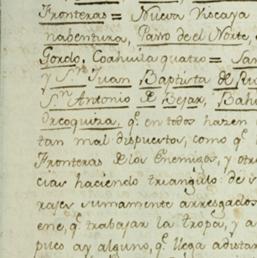 Fronteras = Nueva Viscaya
nabentura, Passo de el Norte,
Gordo, Coahuila quatro = San
y Sn. Juan Baptista de Ru
Sn. Antonio de Bejar, Bahi
Orcoquiza, q.e en todos hacen
tan mal dispuertos, como q.e l
Fronteras de los Enemigos, y otro
cias haciendo triangulo de
rajes sumamente arresgados
ene, q.e trabajar la tropa, y a
pues ay alguno, q.e llega a distar